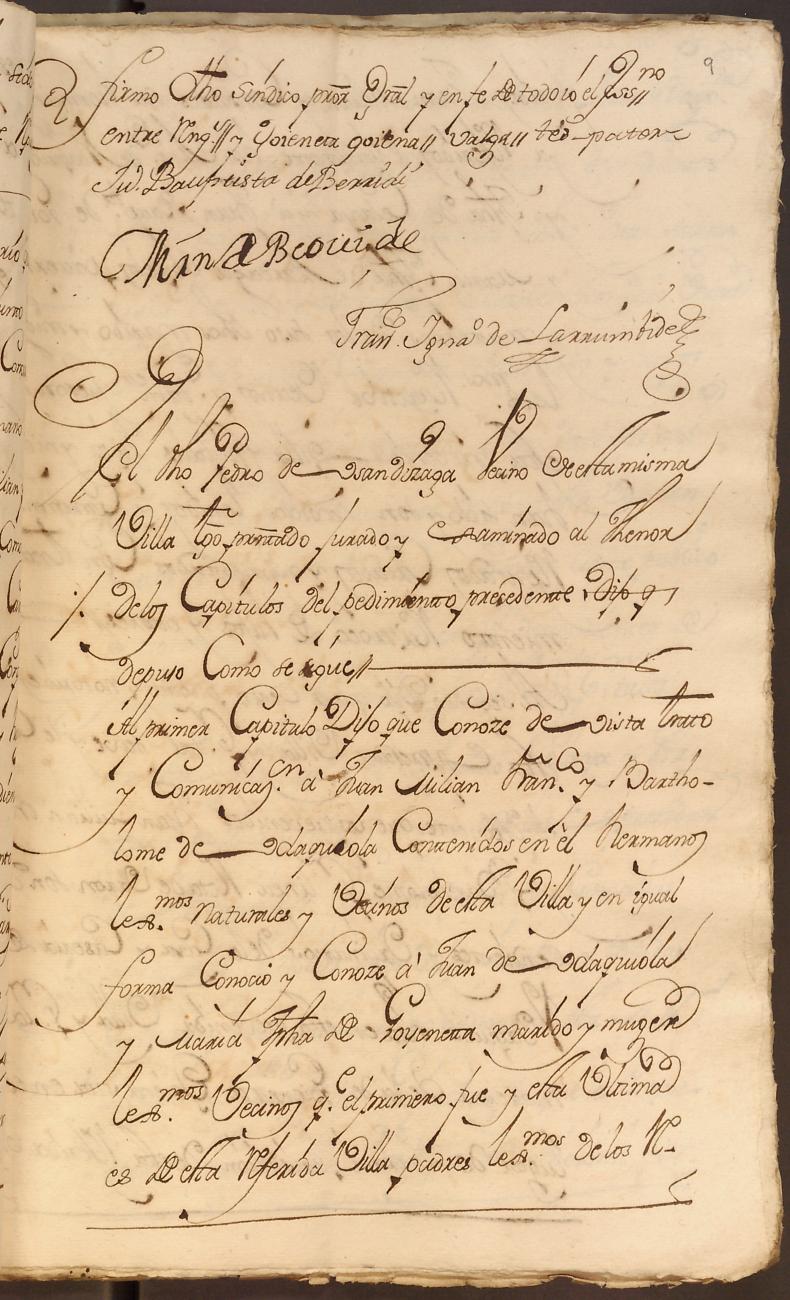 9
firmo dho Síndico, pror Gral y en fe de todo ío el Essno
entre Reng.s // y Goieneta goiena // valga // tdo - pator
Ju. Bauptista de Berridi
Mrn de Beovide
Fran. Igna.o de Larrumbide
El dho Pedro de Vsandizaga Vecino de esta misma
Villa tgo prntado jurado y esaminado al thenor
delos Capítulos del pedimiento precedente, Dijo y
depuso Como se sigue //
Al primer Capitulo Dijo que Conoze de vista trato
y Comunicaz.on â Juan Milian Fran.co y Bartho-
lome de Odaquiola Contenidos en êl hermanos
lex.mos Naturales y Vezinos de esta Villa y en igual
forma Conocio y Conoze â Juan de Odaquiola
y María Jpha de Goyeneta marído y muger
lex.mos Vecinos q.e el primero fue y esta Ultima
es de esta Referida Villa padres lex.mos de los Re-